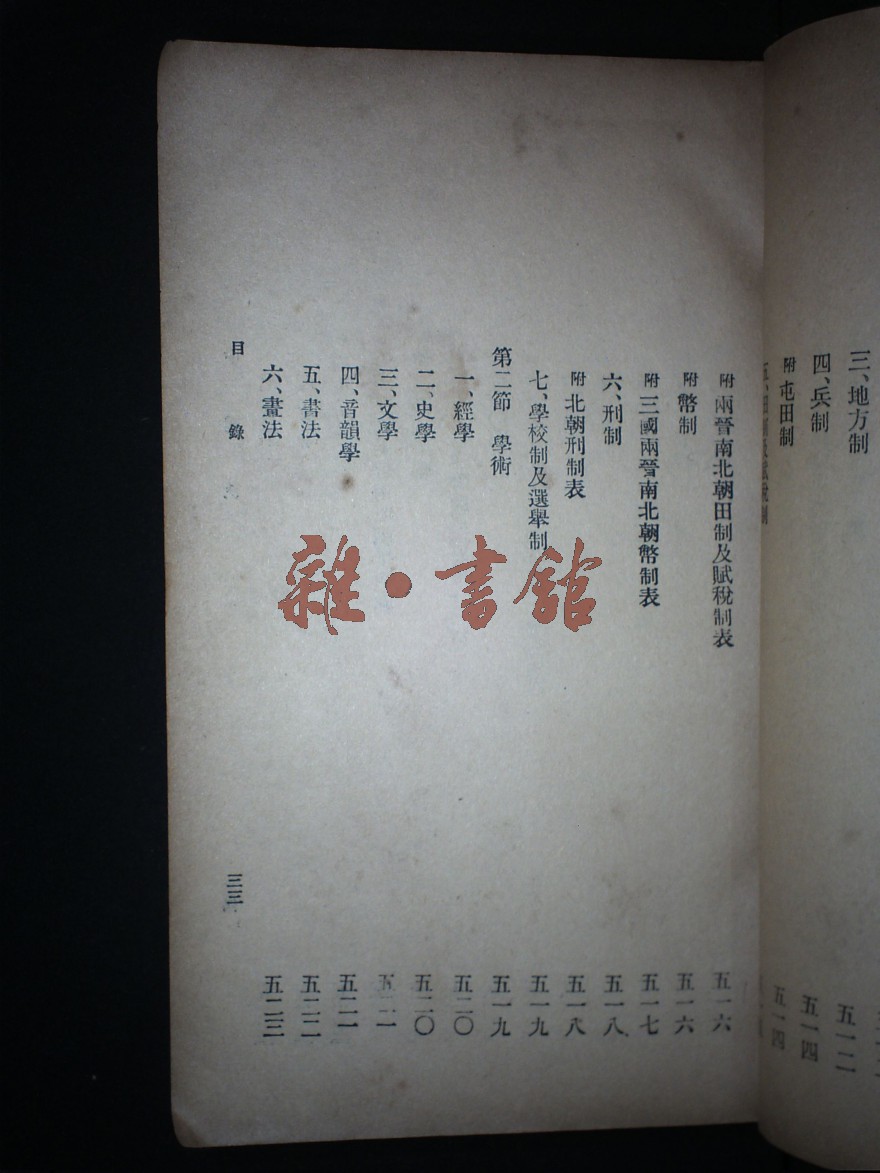 三、地方制 五一二
四、兵制 五一四
附 屯田制 五一四
附 兩晉南北朝田制及賦稅制表 五一六
附 幣制 五一六
附 三國兩晉南北朝幣制表 五一七
六、刑制 五一八
附 北朝刑制表 五一八
七、學校制及選舉制 五一九
第二節 學術 五一九
一、經學 五二〇
二、史學 五二〇
三、文學
四、音韻學 五二一
五、書法 五二二
六、畫法 五二三
目錄 三三
雜·書館